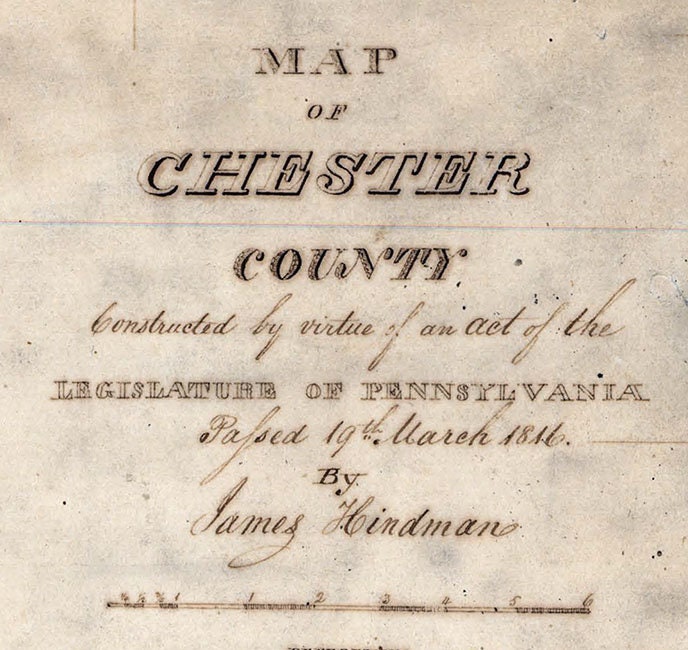 MAP
OF
CHESTER
COUNTY
Constructed by virtue of an act of the
LEGISLATURE OF PENNSYLVANIA
Paſsed 19th. March 1816.
By
James Hindman
1 1 2 3 4 5 6